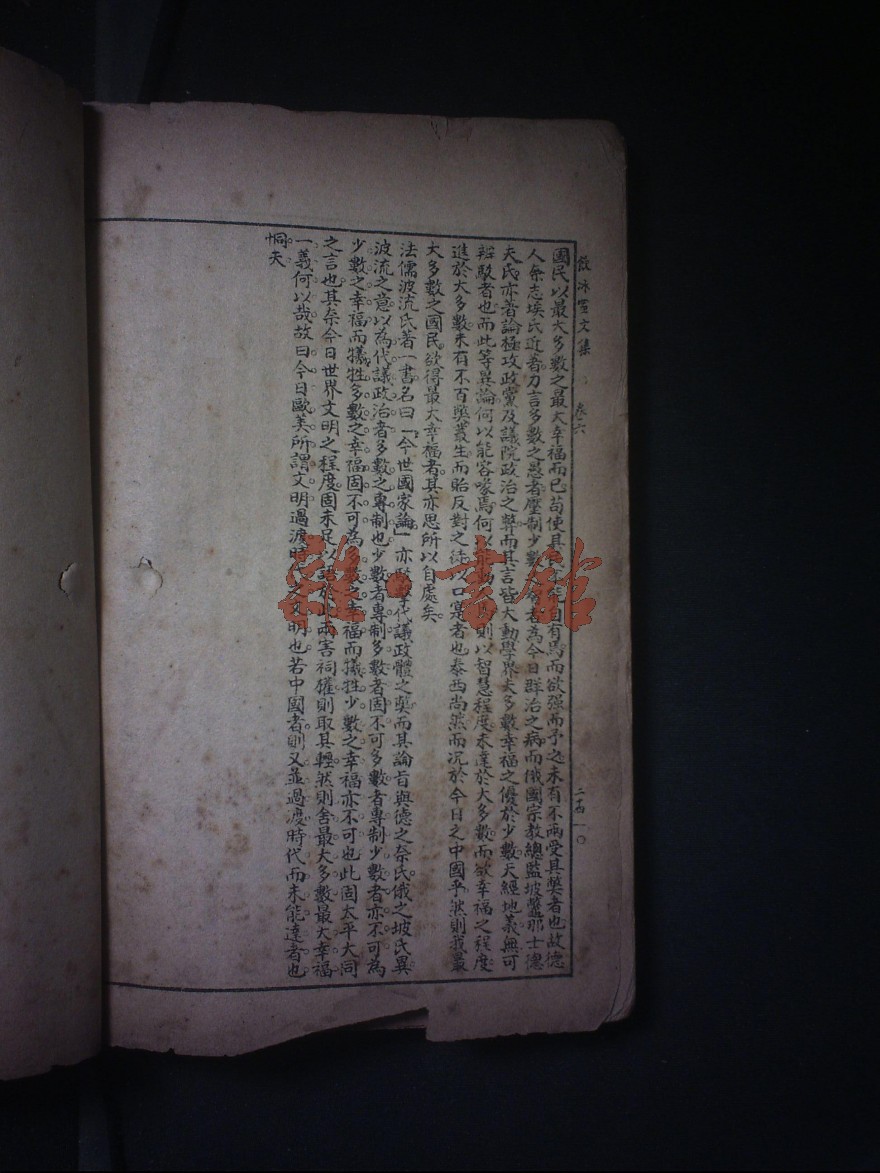 飲冰室文集
卷六
二十四
一〇
國民以最大多數之最大幸福而已苟使其 自有焉而欲强而予之未有不兩受其獘者也故德
人奈志埃氏近著力言多數之愚者壓制少數 者為今日群治之病而俄國宗教總監坡鼈那士德
夫氏亦著論極攻政黨及議院政治之弊而其言皆大動學界夫多數幸福之優於少數天經地義無可
辯駁者也而此等異論何以能容喙焉何以能 則以智慧程度未達於大多數而欲幸福之程度
進於大多數未有不百獘叢生而貽反對之徒以口寔者也泰西尚然而况於今日之中國乎然則我最
大多數之國民欲得最大幸福者其亦思所以自處矣
法儒波流氏著一書名曰「今世國家論」亦 代議政體之獘而其論旨與德之奈氏俄之坡氏異
波流之意以為代議政治者多數之專制也少數者專制多數者固不可多數者專制少數者亦不可為
少數之幸福而犧牲多數之幸福固不可為多數之幸福而犧牲少數之幸福亦不可也此固太平大同
之言也其奈今日世界文明之程度固未足以語於 兩害祠權則取其輕然則舍最大多數最大幸福
一義何以哉故曰今日歐美所謂文明過渡時代之文明也若中國者則又並過渡時代而未能達者也
恫夫
雜·書館